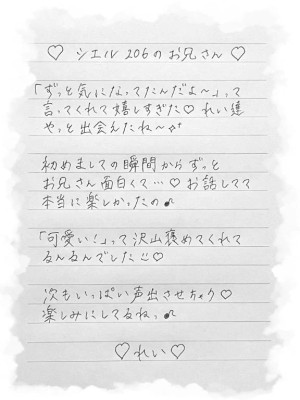 ♡ シエル 206 のお兄さん ♡
「ずっと気になってたんだよ〜」って
言ってくれて嬉しすぎた♡ れい達
やっと出会えたね〜✧
初めましての瞬間からずっと
お兄さん面白くて…♡ お話してて
本当に楽しかったの♪
「可愛い!」って沢山褒めてくれて
るんるんでした♡
次もいっぱい声出させちゃう♡
楽しみにしてるねっ♪
♡れい♡